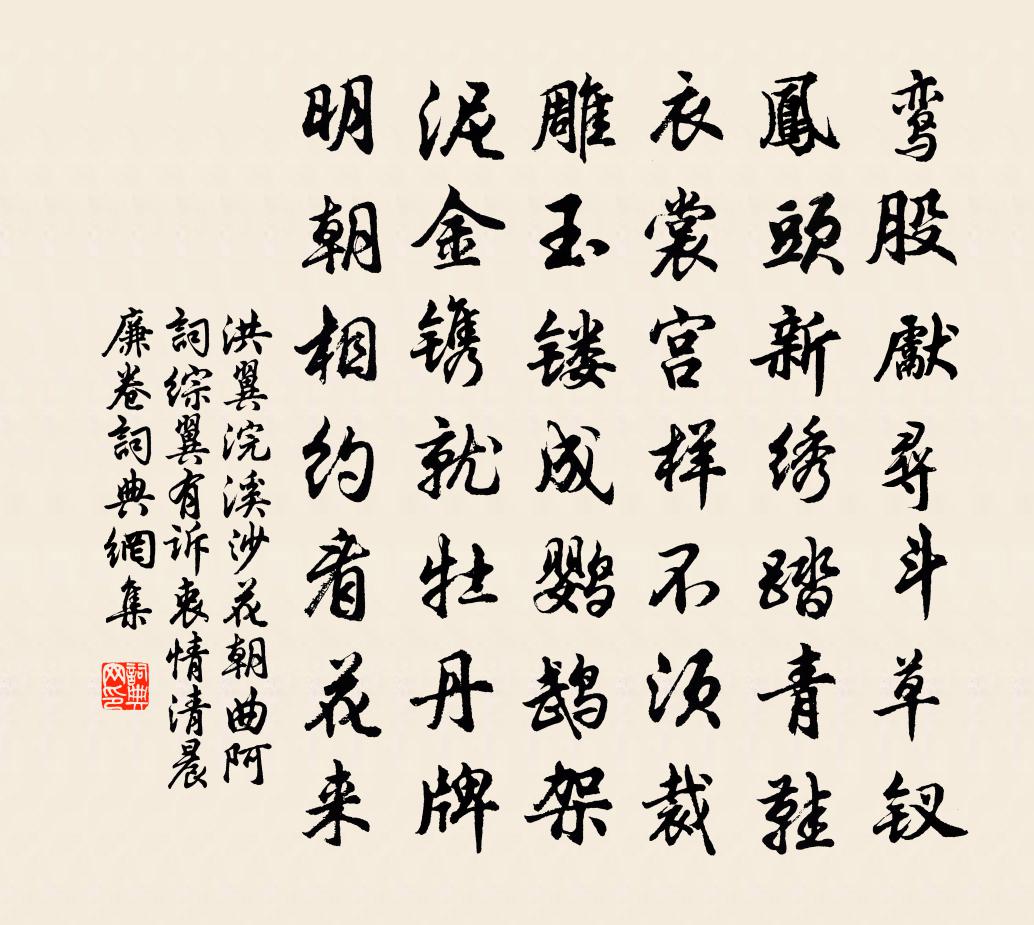 鸾股獻尋斗草钗
鳳頭新绣踏青鞋
衣裳宫样不须裁
雕玉镂成鹦鹉架
泥金镌就牡丹牌
明朝相约看花来
洪翼浣溪沙花朝曲阿
詞综翼有诉衷情清晨
廉卷詞典網集
詞典网印